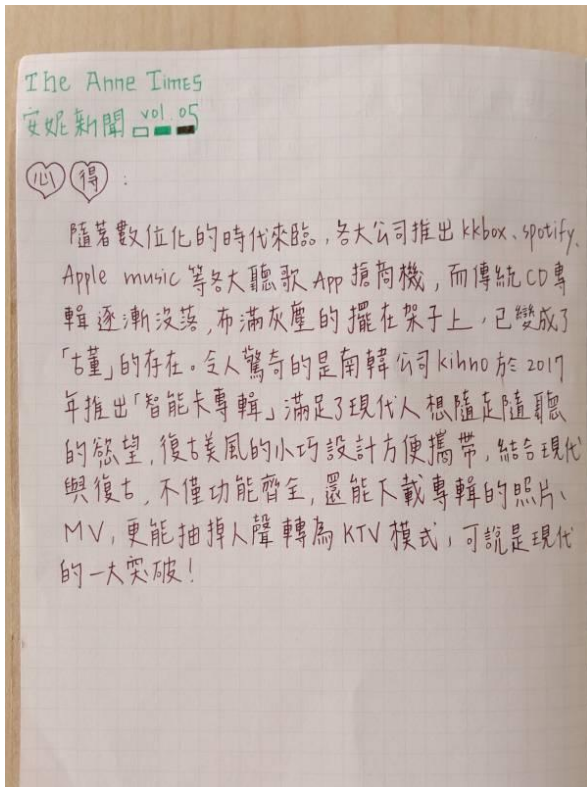 The Anne Times
安妮新聞 vol.05
心得:
隨著數位化的時代來臨,各大公司推出kkbox、spotify、
Apple music等各大聽歌App搶商機,而傳統CD專
輯逐漸沒落,布滿灰塵的擺在架子上,已變成了
「古董」的存在。令人驚奇的是南韓公司kihno於2017
年推出「智能卡專輯」滿足了現代人想隨走隨聽
的慾望,復古美風的小巧設計方便攜帶,結合現代
與復古,不僅功能齊全,還能下載專輯的照片、
MV,更能抽掉人聲轉為KTV模式,可說是現代
的一大突破!